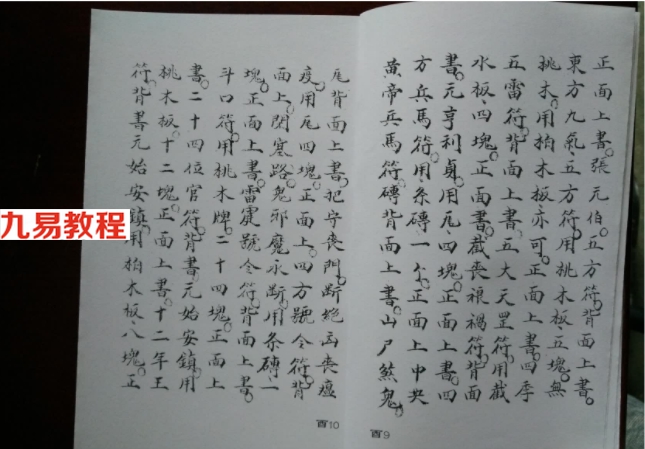 正面上書。張元伯。五方符。背面上書。
東方九氣五方符。用桃木板五塊。無
桃木。用柏木板亦可。正面上書。四季
五雷符。背面上書。五大天罡符。用截
水板、四塊。正面書。截喪禳禍符。背面
書。元亨利貞。用瓦四塊。正面上書。四
方兵馬符。用条磚一个。正面上中央
黄帝兵馬符。磚背面上書。山尸煞鬼。
百9
尾背面上書。把守喪門。断绝凶喪瘟
疫。用瓦四塊。正面上。四方號令符。背
面上。閉塞路。鬼邪魔永断。用条磚一
塊。正面上書。雷霆號令符。背面上書。
斗口符。用桃木牌。二十四塊。正面上
書。二十四位官符。背書。元始安鎮。用
桃木板。十二塊。正面上書。十二年王
符。背書元始安鎮。用柏木板、八塊。正
百10
九易教程